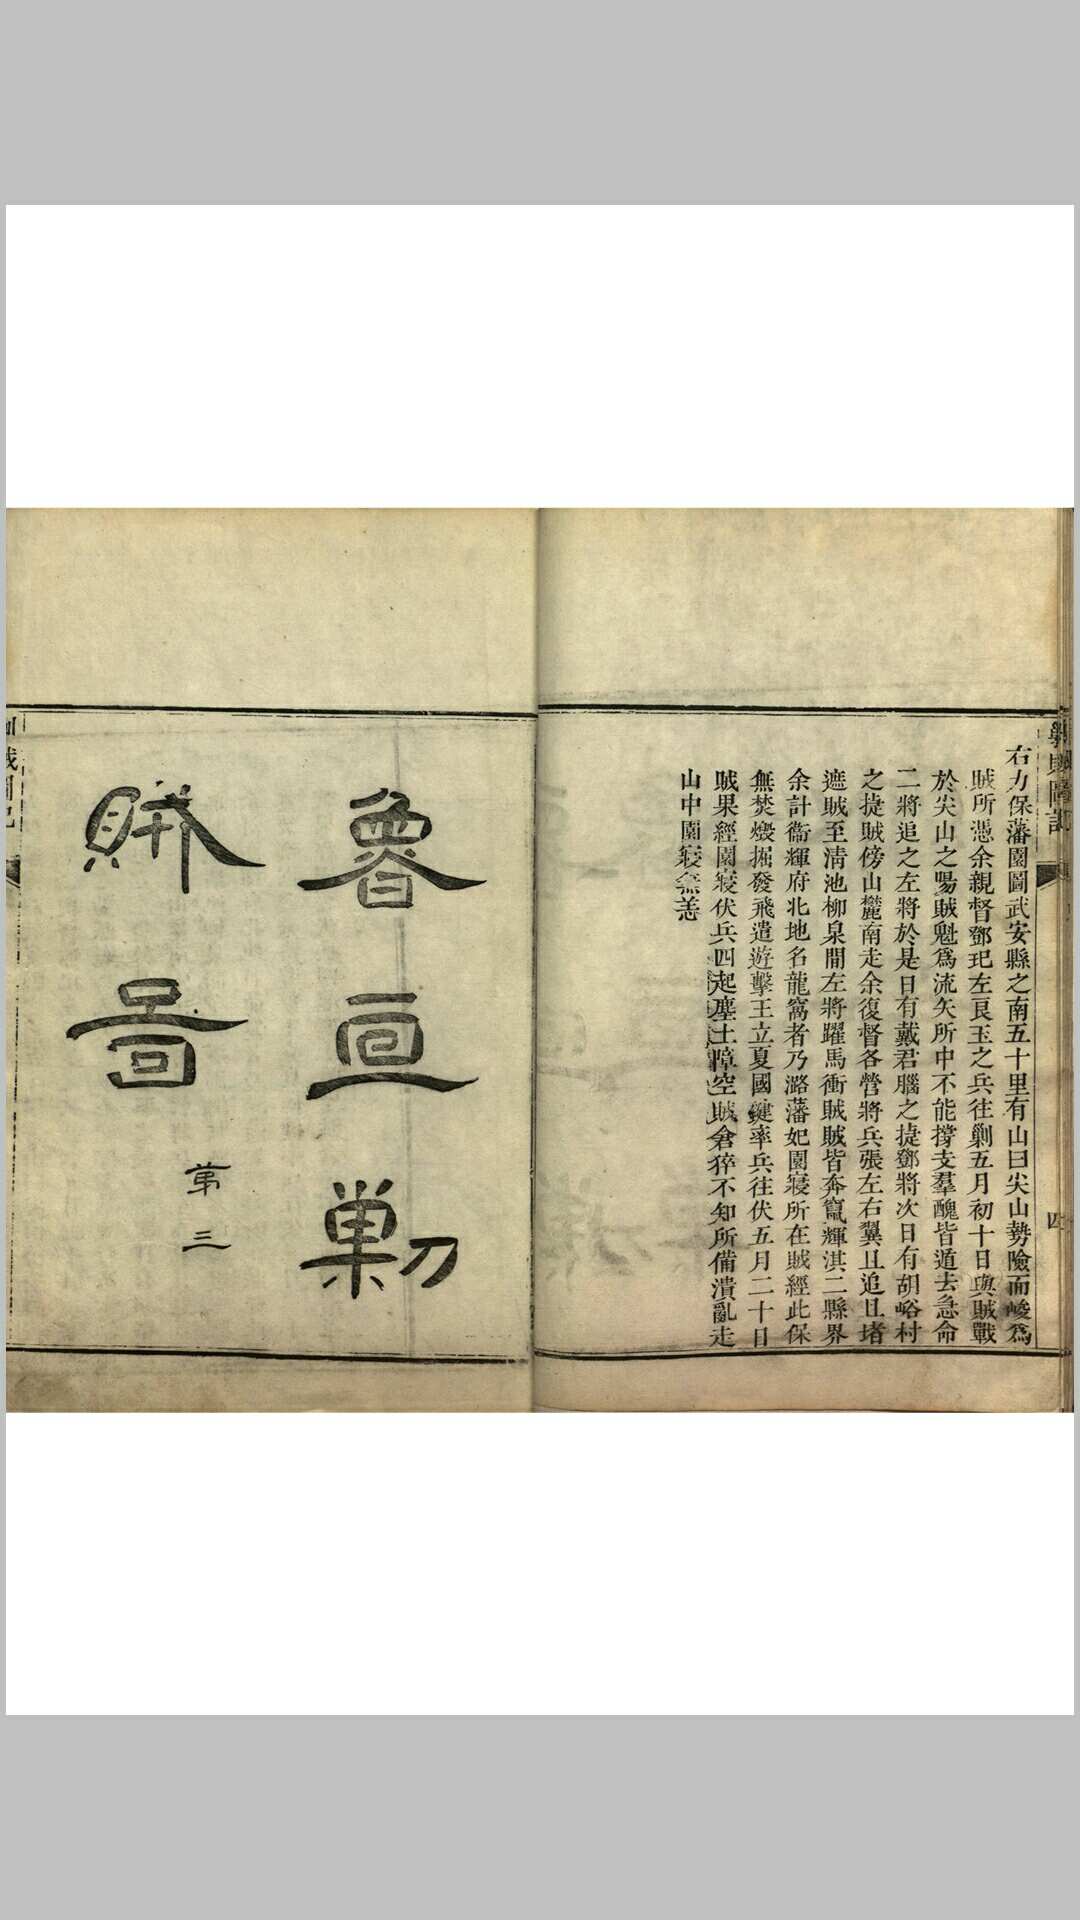 右力保藩園圖武安縣之南五十里有山曰尖山勢險而峻爲
賊所憑余親督鄧玘左良玉之兵往剿五月初十日與賊戰
於尖山之陽賊魁爲流矢所中不能撐支羣醜皆遁去急命
二將追之左將於是日有戴君腦之捷鄧將次日有胡峪村
之捷賊傍山麓南走余復督各營將兵張左右翼且追且堵
遮賊至淸池柳泉間左將躍馬衝賊賊皆奔竄輝淇二縣界
余計衞輝府北地名龍窩者乃潞藩妃園寢所在賊經此保
無焚燬掘發飛遣遊擊王立夏國鍵率兵往伏五月二十日
賊果經園寢伏兵四起塵土障空賊倉猝不知所備潰亂走
山中園寢無恙
四
剿
賊圖
第三